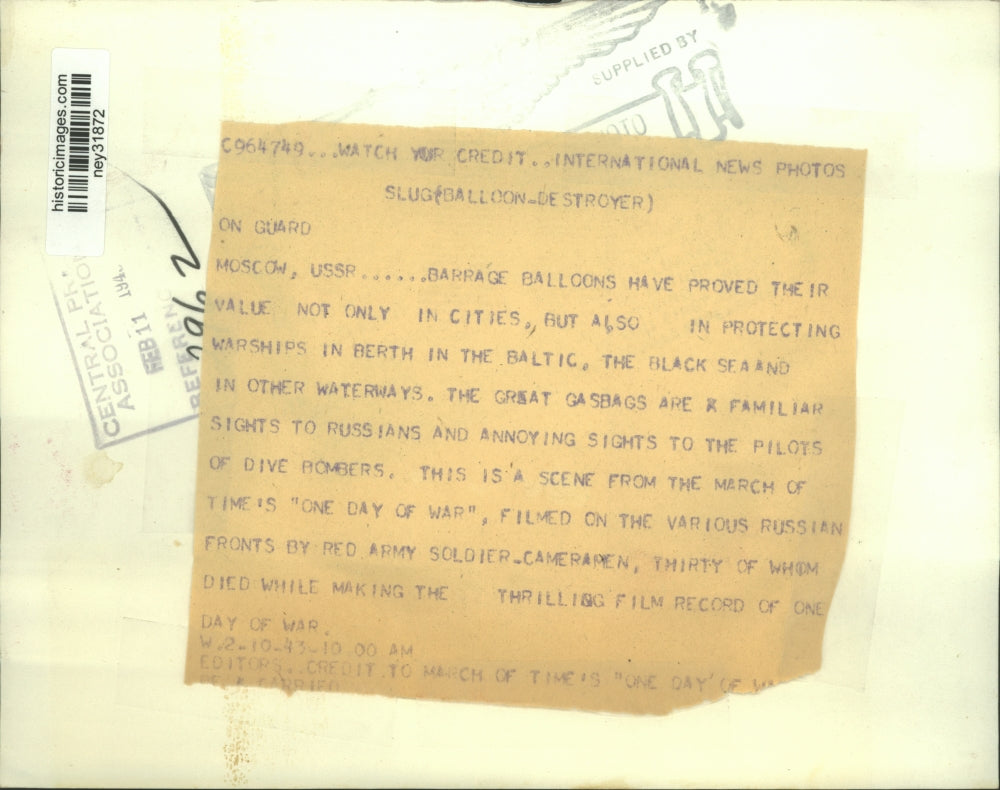 historicimages.com
ney31872
SUPPLIED BY
CENTRAL
ASSOCIATION
FEB 11
C964749...WATCH YUR CREDIT..INTERNATIONAL NEWS PHOTOS
SLUG(BALLOON-DESTROYER)
ON GUARD
MOSCOW, USSR......BARRAGE BALLOONS HAVE PROVED THEIR
VALUE NOT ONLY IN CITIES., BUT ALSO IN PROTECTING
WARSHIPS IN BERTH IN THE BALTIC, THE BLACK SEAAND
IN OTHER WATERWAYS. THE GREAT GASBAGS ARE X FAMILIAR
SIGHTS TO RUSSIANS AND ANNOYING SIGHTS TO THE PILOTS
OF DIVE BOMBERS. THIS IS A SCENE FROM THE MARCH OF
TIME'S "ONE DAY OF WAR", FILMED ON THE VARIOUS RUSSIAN
FRONTS BY RED ARMY SOLDIER-CAMERAMEN, THIRTY OF WHOM
DIED WHILE MAKING THE THRILLING FILM RECORD OF ONE
DAY OF WAR.
W.2-10-43-10 00 AM
EDITORS..CREDIT TO MARCH OF TIME'S "ONE DAY OF